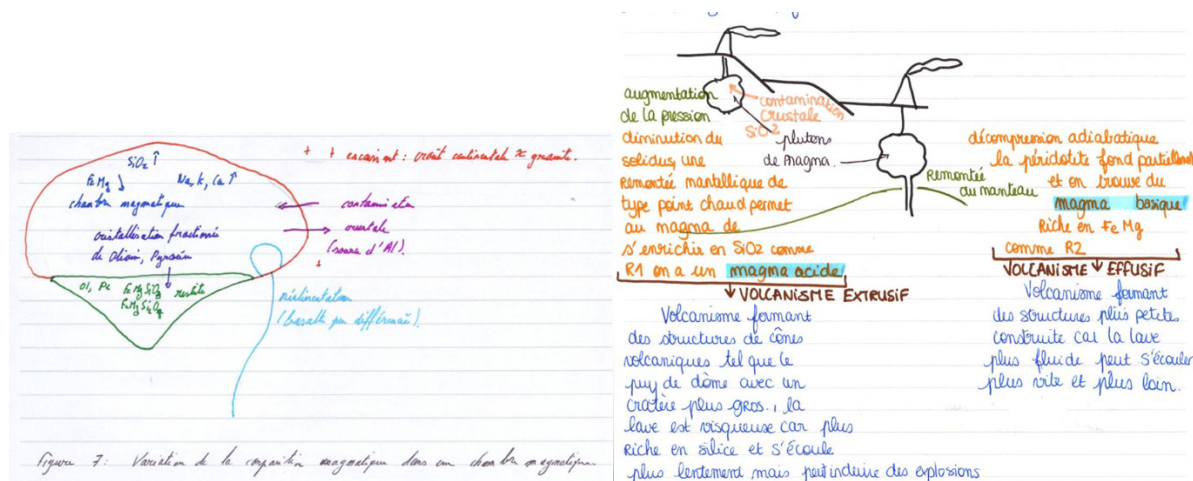 SiO2 ↑
+ + encaissant : croûte continentale ≈ granite.
FeMg ↓ Na, K, Ca ↑
chambre magmatique
contamination
crustale
(source d'Al)
cristallisation fractionnée
de Olivine, Pyroxène
Ol, Px FeMgSiO3 restite
FeMgSiO4
réalimentation
(basalte peu différencié).
Figure 7 : Variation de la composition magmatique dans une chambre magmatique
augmentation
de la pression
contamination
crustale
SiO2
diminution du
solidus, une
remontée mantellique de
type point chaud permet
au magma de
s'enrichir en SiO2 comme
R1 on a un magma acide
plutons
de magma
Remontée
du manteau
décompression adiabatique
la péridotite fond partiellement
et on trouve du
magma basique
Riche en FeMg
comme R2
VOLCANISME EXTRUSIF
Volcanisme formant
des structures de cônes
volcaniques tel que le
puy de dôme avec un
cratère plus gros., la
lave est visqueuse car plus
Riche en silice et s'écoule
plus lentement mais peut induire des explosions
VOLCANISME EFFUSIF
Volcanisme formant
des structures plus petites
construite car la lave
plus fluide peut s'écouler
plus vite et plus loin.